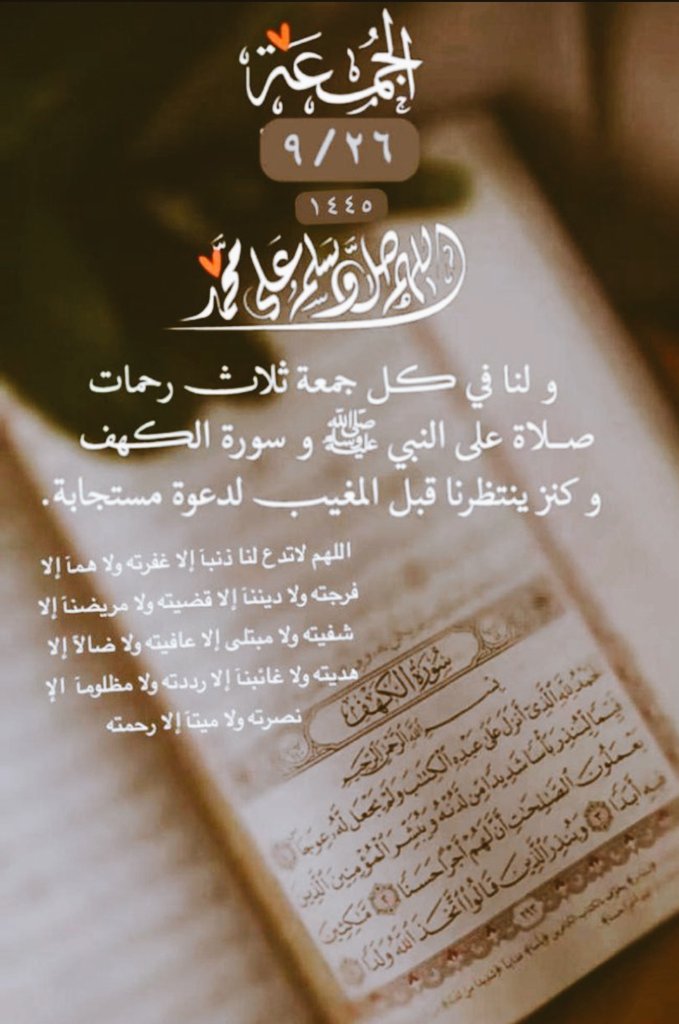 الجُمُعَة
٩/٢٦
١٤٤٥
اللهم صلِّ وسَلِّم على محمَّد
و لنا في كل جمعة ثلاث رحمات
صلاة على النبي ﷺ و سورة الكهف
و كنز ينتظرنا قبل المغيب لدعوة مستجابة.
اللهم لاتدع لنا ذنباَ إلا غفرته ولا هماَ إلا
فرجته ولا ديننآ إلا قضيته ولا مريضنآ إلا
شفيته ولا مبتلى إلا عافيته ولا ضالآ إلا
هديته ولا غائبنآ إلا رددته ولا مظلومآ الإ
نصرته ولا ميتآ إلا رحمته
سُورَةُ الكَهْفِ
بِسْمِ ٱللَّهِ ٱلرَّحْمَٰنِ ٱلرَّحِيمِ
حَمْدُ لِلَّهِ ٱلَّذِىٓ أَنزَلَ عَلَىٰ عَبْدِهِ ٱلْكِتَٰبَ وَلَمْ يَجْعَل لَّهُۥ عِوَجَا ١
قَيِّمًا لِّيُنذِرَ بَأْسًا شَدِيدًا مِّن لَّدُنْهُ وَيُبَشِّرَ ٱلْمُؤْمِنِينَ ٱلَّذِينَ
يَعْمَلُونَ ٱلصَّٰلِحَٰتِ أَنَّ لَهُمْ أَجْرًا حَسَنًا ٢ مَّٰكِثِينَ
فِيهِ أَبَدًا ٣ وَيُنذِرَ ٱلَّذِينَ قَالُوا۟ ٱتَّخَذَ ٱللَّهُ وَلَدًا ٤
٢٩٣